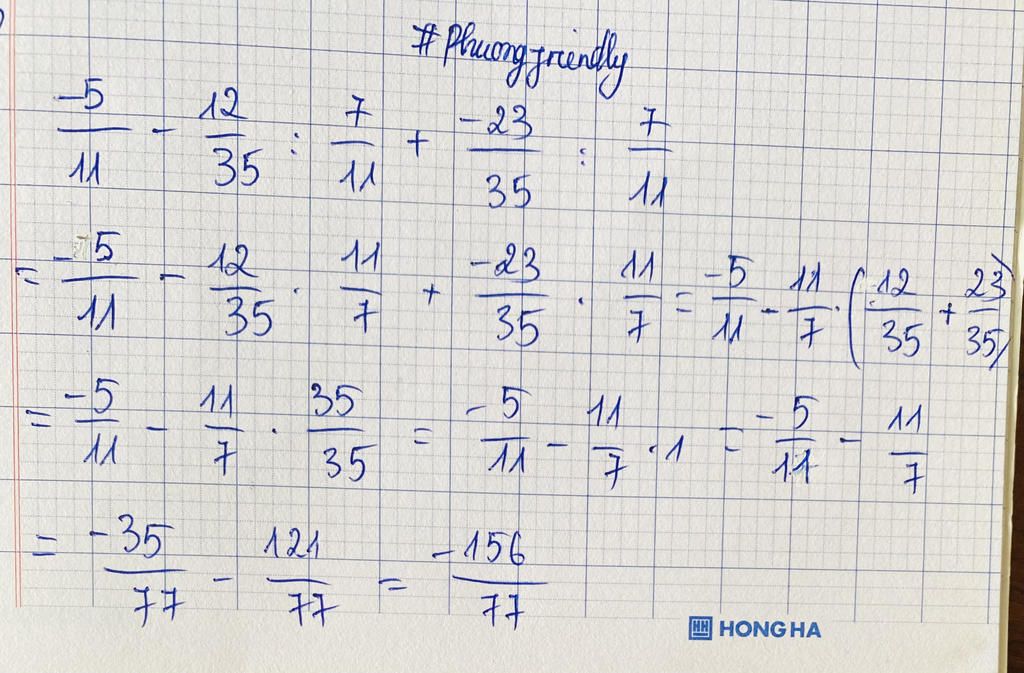 #Phuongfriendly
-5/11 - 12/35 : 7/11 + -23/35 : 7/11
= -5/11 - 12/35 . 11/7 + -23/35 . 11/7 = -5/11 - 11/7 . (12/35 + 23/35)
= -5/11 - 11/7 . 35/35 = -5/11 - 11/7 . 1 = -5/11 - 11/7
= -35/77 - 121/77 = -156/77
HONG HA